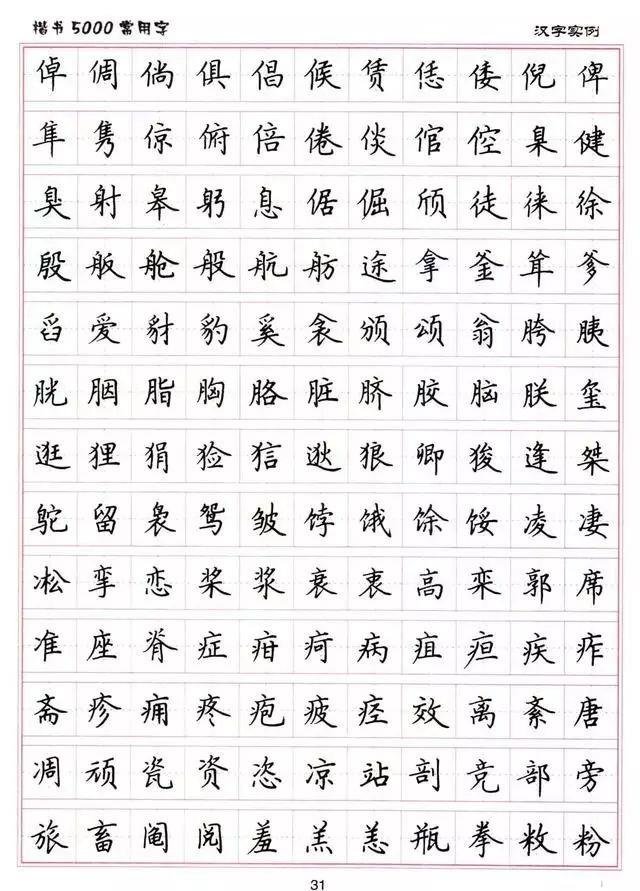 楷书5000常用字 汉字实例
倬 倜 倘 俱 倡 候 赁 恁 倭 倪 俾
隼 隽 倞 俯 倍 倦 倓 倌 倥 臬 健
臭 射 皋 躬 息 倨 倔 颀 徒 徕 徐
殷 舨 舱 般 航 舫 途 拿 釜 耸 爹
舀 爱 豺 豹 奚 衾 颁 颂 翁 胯 胰
胱 胭 脂 胸 胳 脏 脐 胶 脑 朕 玺
逛 狸 狷 猃 狺 逖 狼 卿 狻 逢 桀
鸵 留 袅 鸳 皱 饽 饿 馀 馁 凌 凄
凇 挛 恋 桨 浆 衰 衷 高 栾 郭 席
准 座 脊 症 疳 疴 病 疽 疸 疾 痄
斋 疹 痈 疼 疱 疲 痉 效 离 紊 唐
凋 顽 瓷 资 恣 凉 站 剖 竞 部 旁
旅 畜 阄 阅 羞 羔 恙 瓶 拳 敉 粉
31